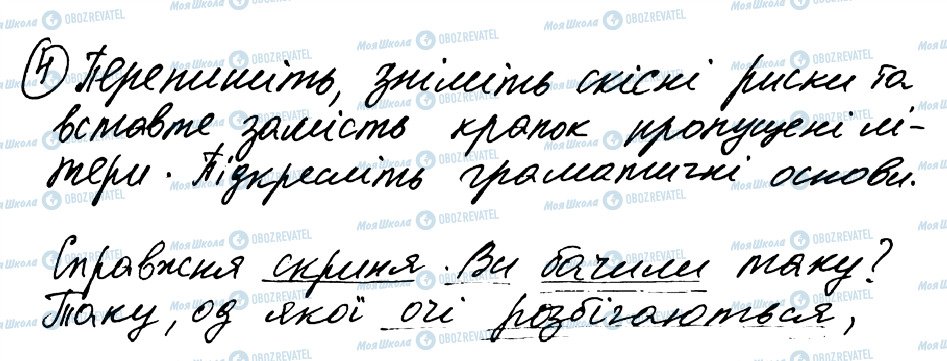 4 Перепишіть, зніміть скісні риски та
вставте замість крапок пропущені лі-
тери. Підкресліть граматичні основи.
Справжня скриня. Ви бачили таку?
Таку, од якої очі розбігаються,